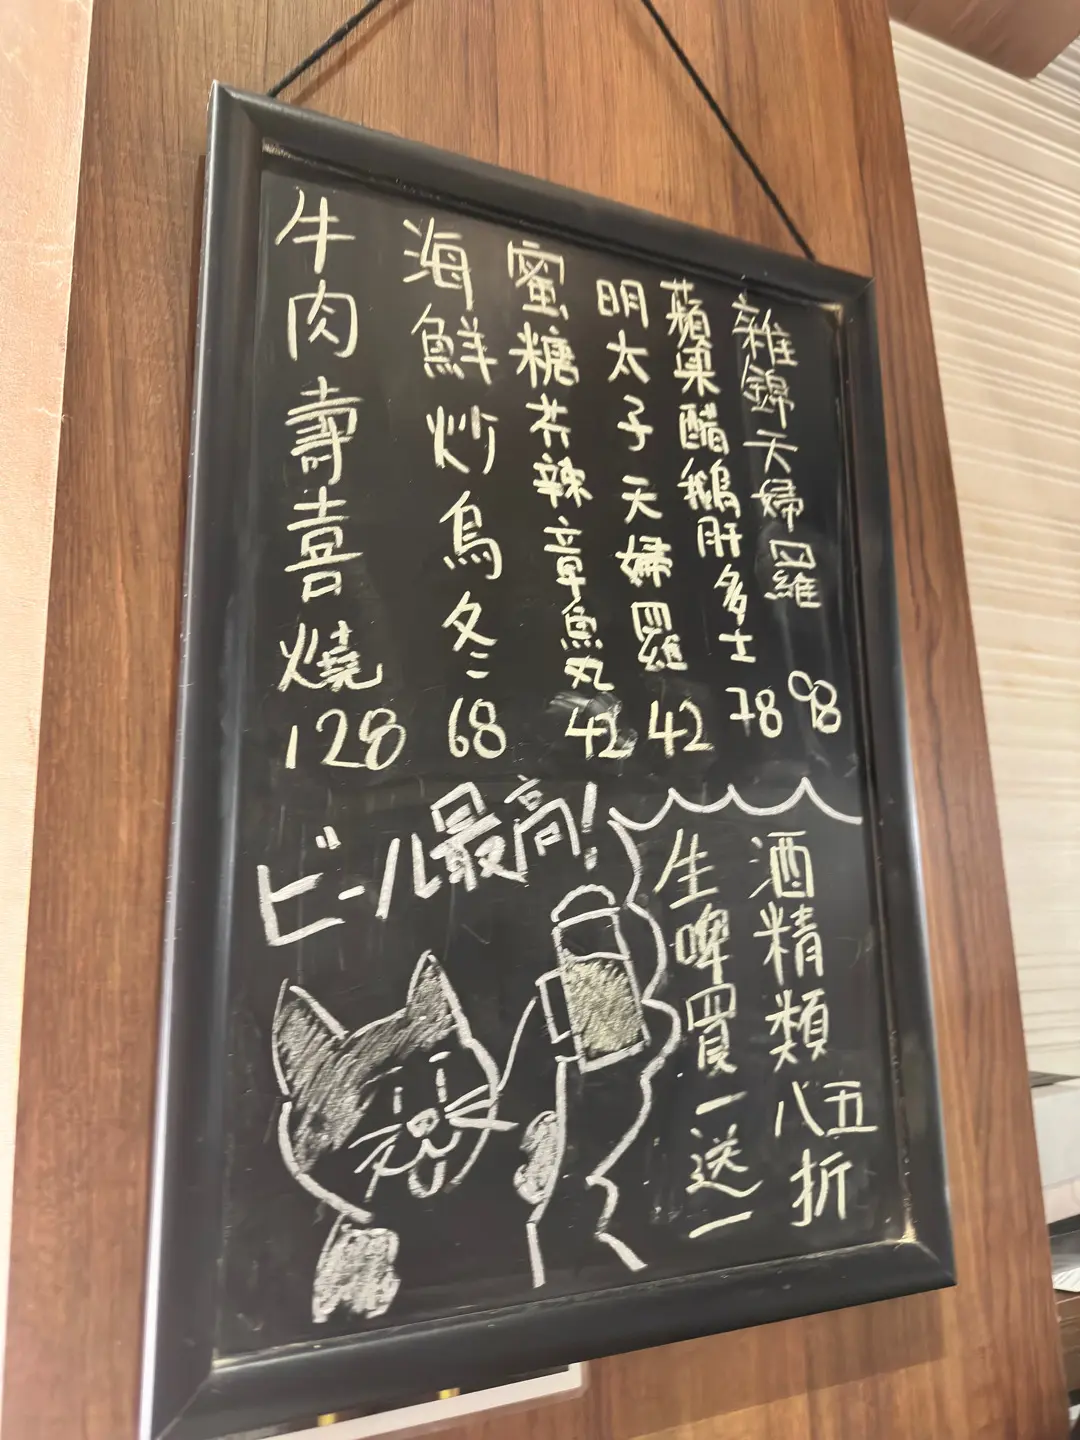 雜錦天婦羅 98
蘋果醋鵝肝多士 78
明太子天婦羅 42
蜜糖芥辣章魚丸 42
海鮮炒烏冬 68
牛肉壽喜燒 128
ビール最高!
酒精類八五折
生啤買一送一